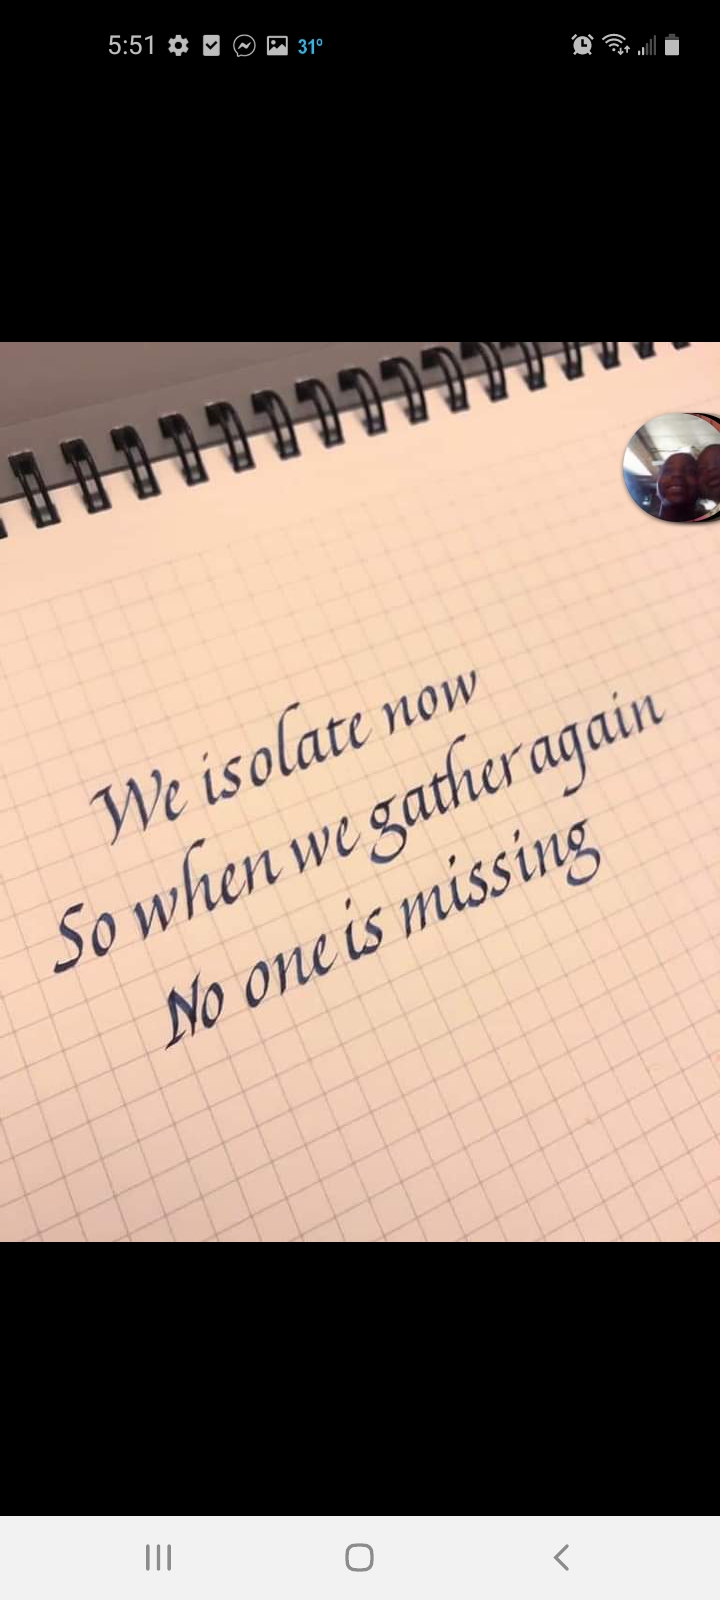 5:51 31°
We isolate now
So when we gather again
No one is missing